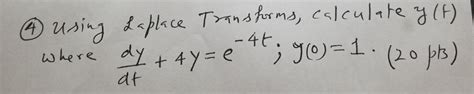 ④ Using Laplace Transforms, calculate y(t)
where dy/dt + 4y = e^{-4t}; y(0) = 1. (20 pts)